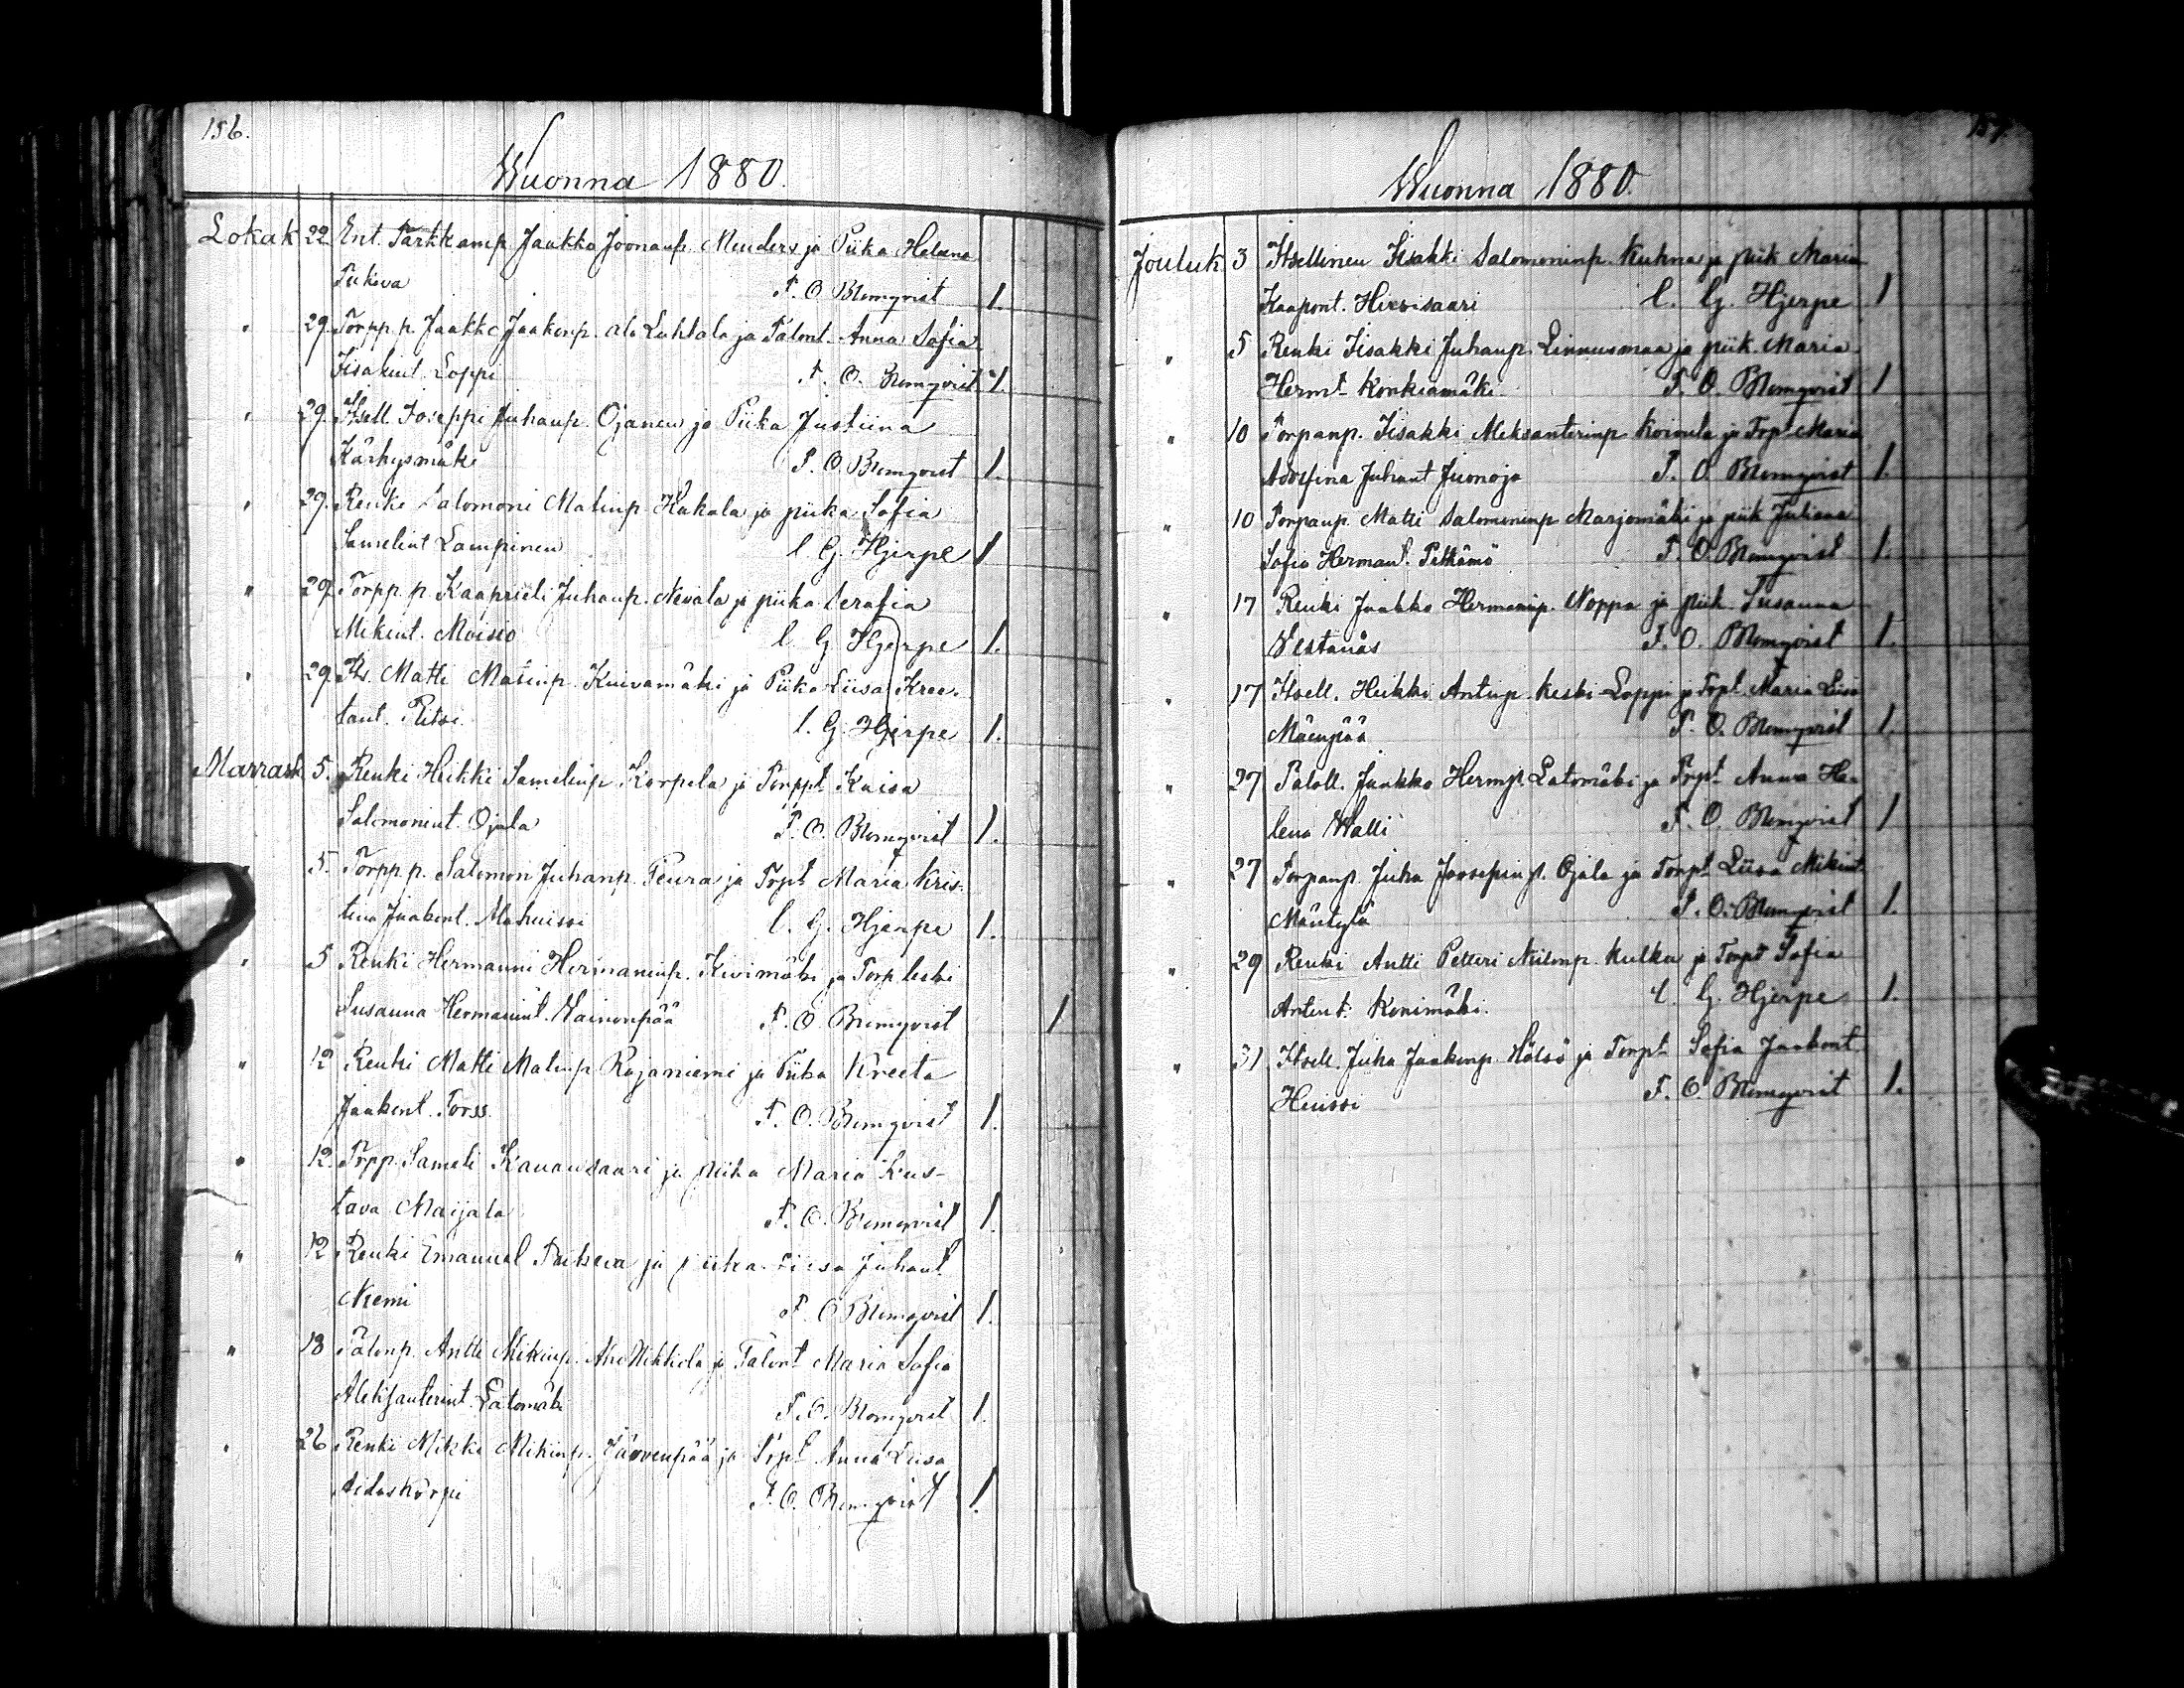 156.
Wuonna 1880.
Lokak 22. Ent. Jaakko Joonanp. Menders ja Piika Helena
F. O. Blomqvist 1.
" 29. Torpp.p. Jaakko Jaakonp. ala Luhtala ja Talont. Anna Sofia
Iisakint. Loppi F. O. Blomqvist 1.
" 29. Itsell. Joseppi Juhanp. Ojanen ja Piika Justiina
Kärkysmäki F. O. Blomqvist 1.
" 29. Renki Salomoni Matinp. Hakala ja piika Sofia
Samelint Lampinen l. G. Hjerpe 1
" 29. Torpp.p. Kaaprieli Juhanp. Nevala ja piika Serafia
Mikint. Moisio l. G. Hjerpe 1.
" 29. Its. Matti Matinp. Kuivamäki ja Piika Liisa Kree-
tant. Ritoi. l. G. Hjerpe 1.
Marrask. 5. Renki Heikki Samelinp Karpela ja Torppt. Kaisa
Salomonint. Ojala F. O. Blomqvist 1.
" 5. Torpp.p. Salomon Juhanp. Peura ja Torpt Maria Kris-
tina Jaakont. l. G. Hjerpe 1.
" 5 Renki Hermanni Hermaninp. Kivimäki ja Torp. leski
Susanna Hermanint. Wainonpää F. O. Blomqvist 1
" 12 Renki Matti Matinp Rajaniemi ja Piika Kreeta
Jaakont. Forss. F. O. Blomqvist 1.
" 12. Torpp. Sameli Kauansaari ja piika Maria Kus-
tava Maijala F. O. Blomqvist 1.
" 12 Renki Emanuel ja piika Liisa Juhant.
Niemi F. O. Blomqvist 1.
" 18 Talonp. Antti Mikinp. Nikkola ja Talont Maria Sofia
Aleksanterint. Latomäki F. O. Blomqvist 1.
" 26 Renki Mikki Mikinp. Järvenpää ja Torpt. Anna Liisa
Aidaskorpi F. O. Blomqvist 1.
157.
Wuonna 1880.
Jouluk 3 Itsellinen Iisakki Salomoninp. Kuhna ja piik Maria
Kaapont. Hirvisaari l. G. Hjerpe 1
" 5 Renki Iisakki Juhanp. Linnusmaa ja piik. Maria
Hermt. Konkiamäki F. O. Blomqvist 1
" 10 Torpanp. Iisakki Aleksanterinp Koivula ja Torpt Maria
Adolfina Juhant Juonoja F. O. Blomqvist 1.
" 10 Torpanp. Matti Salomoninp Marjomäki ja piik Juliana
Sofia Hermant. Petkämö F. O. Blomqvist 1.
" 17 Renki Jaakko Hermaninp. Noppa ja piik Susanna
Westanäs F. O. Blomqvist 1.
" 17 Itsell. Heikki Antinp. Keski-Loppi ja Torpt. Maria Liisa
Mäenpää F. O. Blomqvist 1.
" 27 Taloll. Jaakko Hermp. Latomäki ja Torpt Anna He-
lena Walli F. O. Blomqvist 1
" 27 Torpanp. Juha Joosepinp. Ojala ja Torpt Liisa Mikint.
Mäntylä F. O. Blomqvist 1.
" 29 Renki Antti Petteri Niilonp. Kulku ja Torpt Sofia
Antint. Konimäki. l. G. Hjerpe 1.
" 31 Itsell. Juha Jaakonp. Hölsö ja Torpt Sofia Jaakont
Huissi F. O. Blomqvist 1.